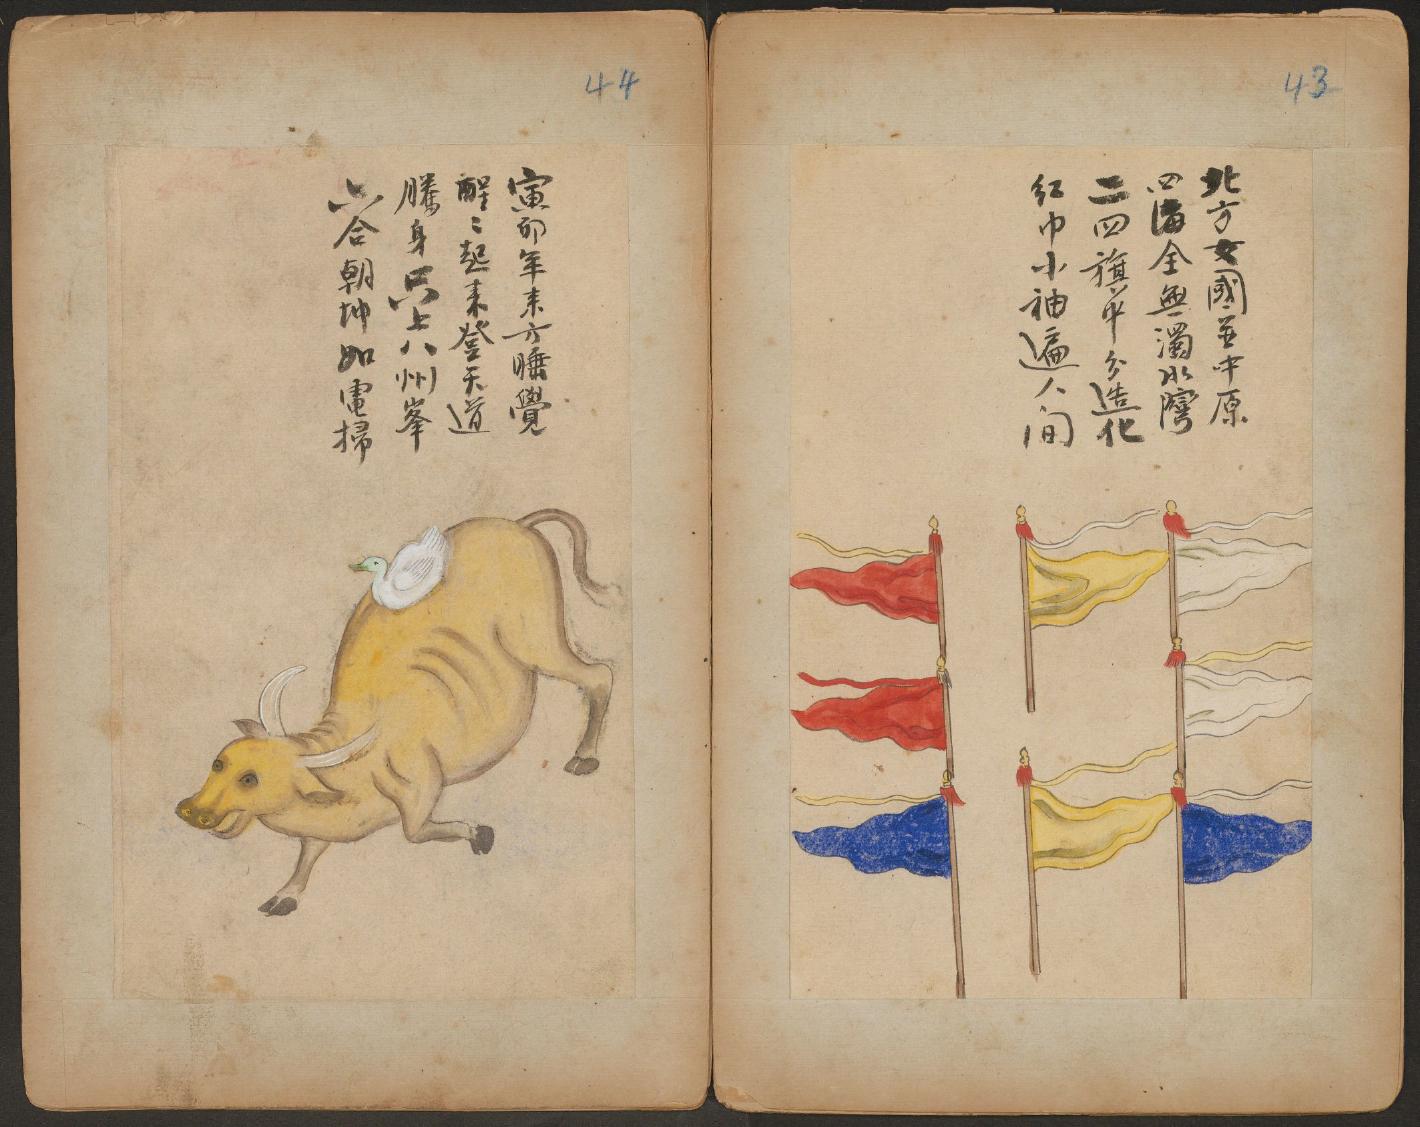 43
北方女國並中原
四海全無濁水灣
二四旗竿分造化
紅巾小袖遍人间
44
寅卯年来方睡覺
醒〻起来登天道
騰身只上八州峯
六合朝坤如電掃